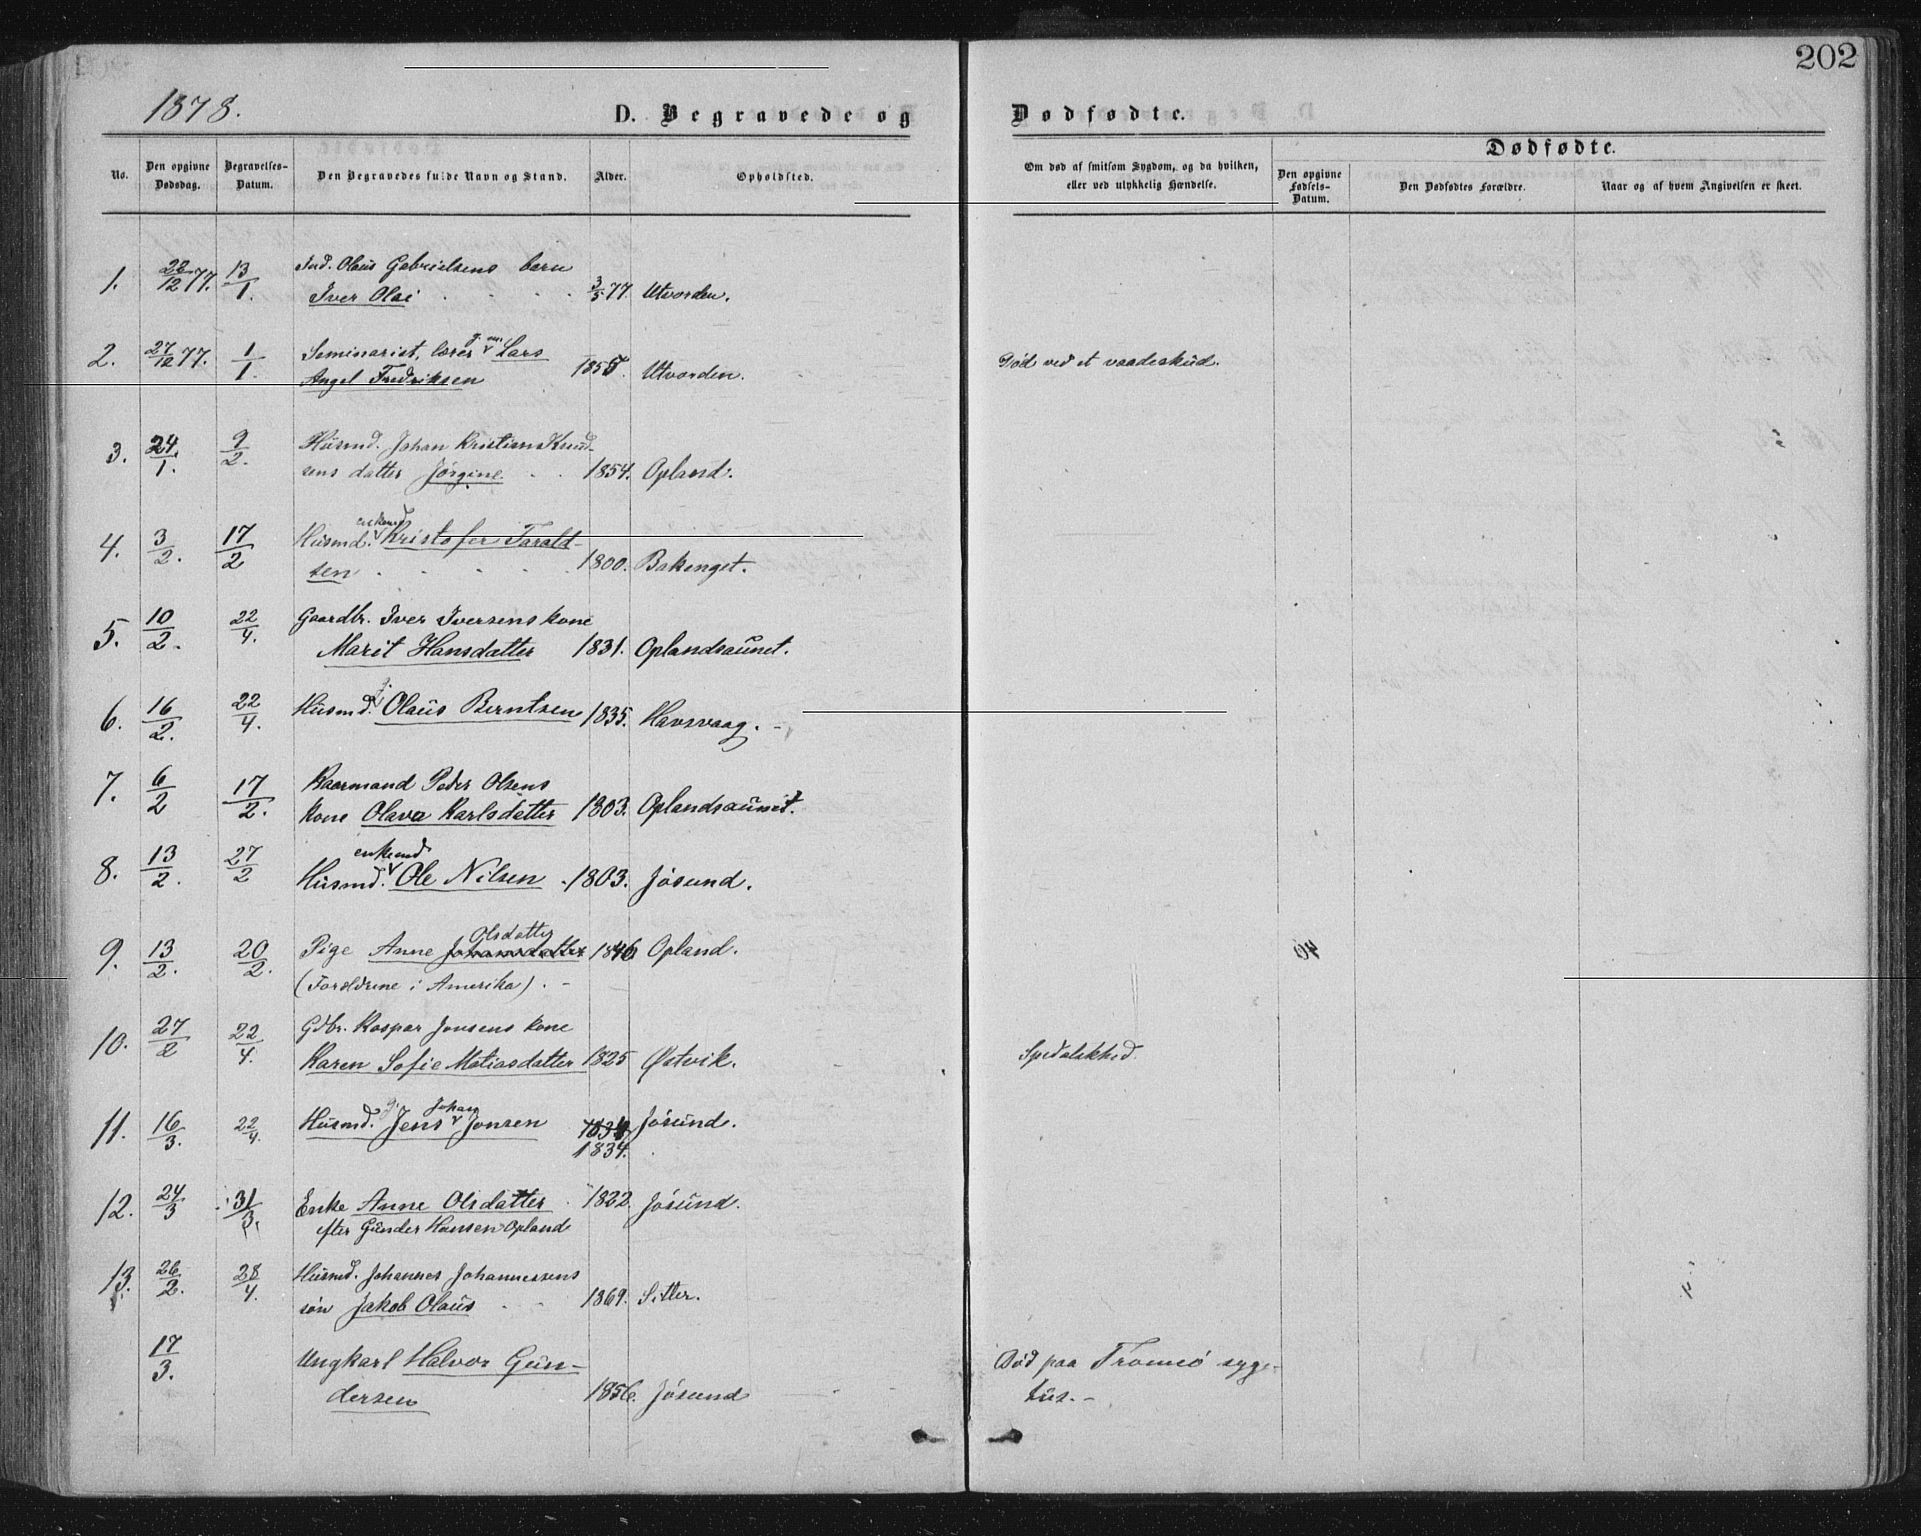 202
1878.
D. Begravede og Dødfødte.
Dødfødte.
No.
Den opgivne Dødsdag.
Begravelses-Datum.
Den Begravedes fulde Navn og Stand.
Alder.
Opholdsted.
Om død af smitsom Sygdom, og da hvilken, eller ved ulykkelig Hændelse.
Den opgivne Fødsels-Datum.
Den Dødfødtes Forældre.
Naar og af hvem Angivelsen er skeet.
1. 28/12 77. 13/1. Ind. Olaus Gabrielsens barn
Iver Olai 3/5 77 Utvorden.
2. 27/12 77. 1/1. Seminarist, lærer g. m. Lars
Angel Fredriksen 1855. Utvorden. Død ved et vaadeskud.
3. 24/1. 9/2. Husmd. Johan Kristian Knud-
sens datter Jørgine 1854. Opland.
4. 3/2. 17/2 Husmd. enkemd Kristofer Tarald-
sen 1800. Bakenget.
5. 10/2. 22/4. Gaardbr. Iver Iversens kone
Marit Hansdatter 1831. Oplandsaunet.
6. 16/2. 22/4. Husmd. g. Olaus Berntsen 1835. Havsvaag.
7. 6/2 17/2. Kaarmand Peder Olsens
kone Olava Karlsdatter 1803. Oplandsaunet.
8. 13/2. 27/2 Husmd. enkemd Ole Nilsen 1803. Jøsund.
9. 13/2. 20/2. Pige Anne Johansdatter Olsdatter 1846 Opland.
(Forældrene i Amerika).
10. 27/2 22/4. Gdbr. Kaspar Jonsens kone
Karen Sofie Matiasdatter 1825 Østvik. Spedalskhed.
11. 16/3. 22/4. Husmd. g. Jens Johan Jonsen Jøsund.
1834.
12. 24/3 31/3. Enke Anne Olsdatter 1822 Jøsund.
efter Gunder Hansen Opland
13. 26/2. 28/4. Husmd. Johannes Johannessens
søn Jakob Olaus 1869. Sitter.
17/3. Ungkarl Halvor Gun-
dersen 1856. Jøsund
Død paa Tromsø syge-
hus.-